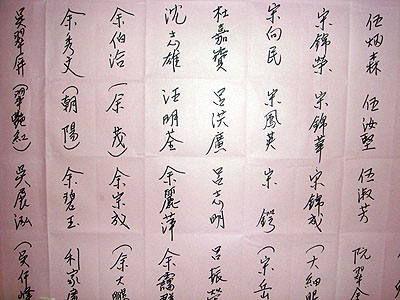 伍炳森 伍汝堅 伍淑芳 阮翠
宋錦榮 宋錦華 宋錦成 (大細明
宋向民 宋鳳英 宋鍔 (宗岳
杜嘉寶 呂洪廣 呂志明 呂振
沈志雄 汪明荃 余麗萍 余靄
余伯治 (余茂) 余宗放 (余大鵬
余秀文 (朝陽) 余碧玉 利家
吳翠屏 (翠艷紅) 吳展泓 (吳仟峰